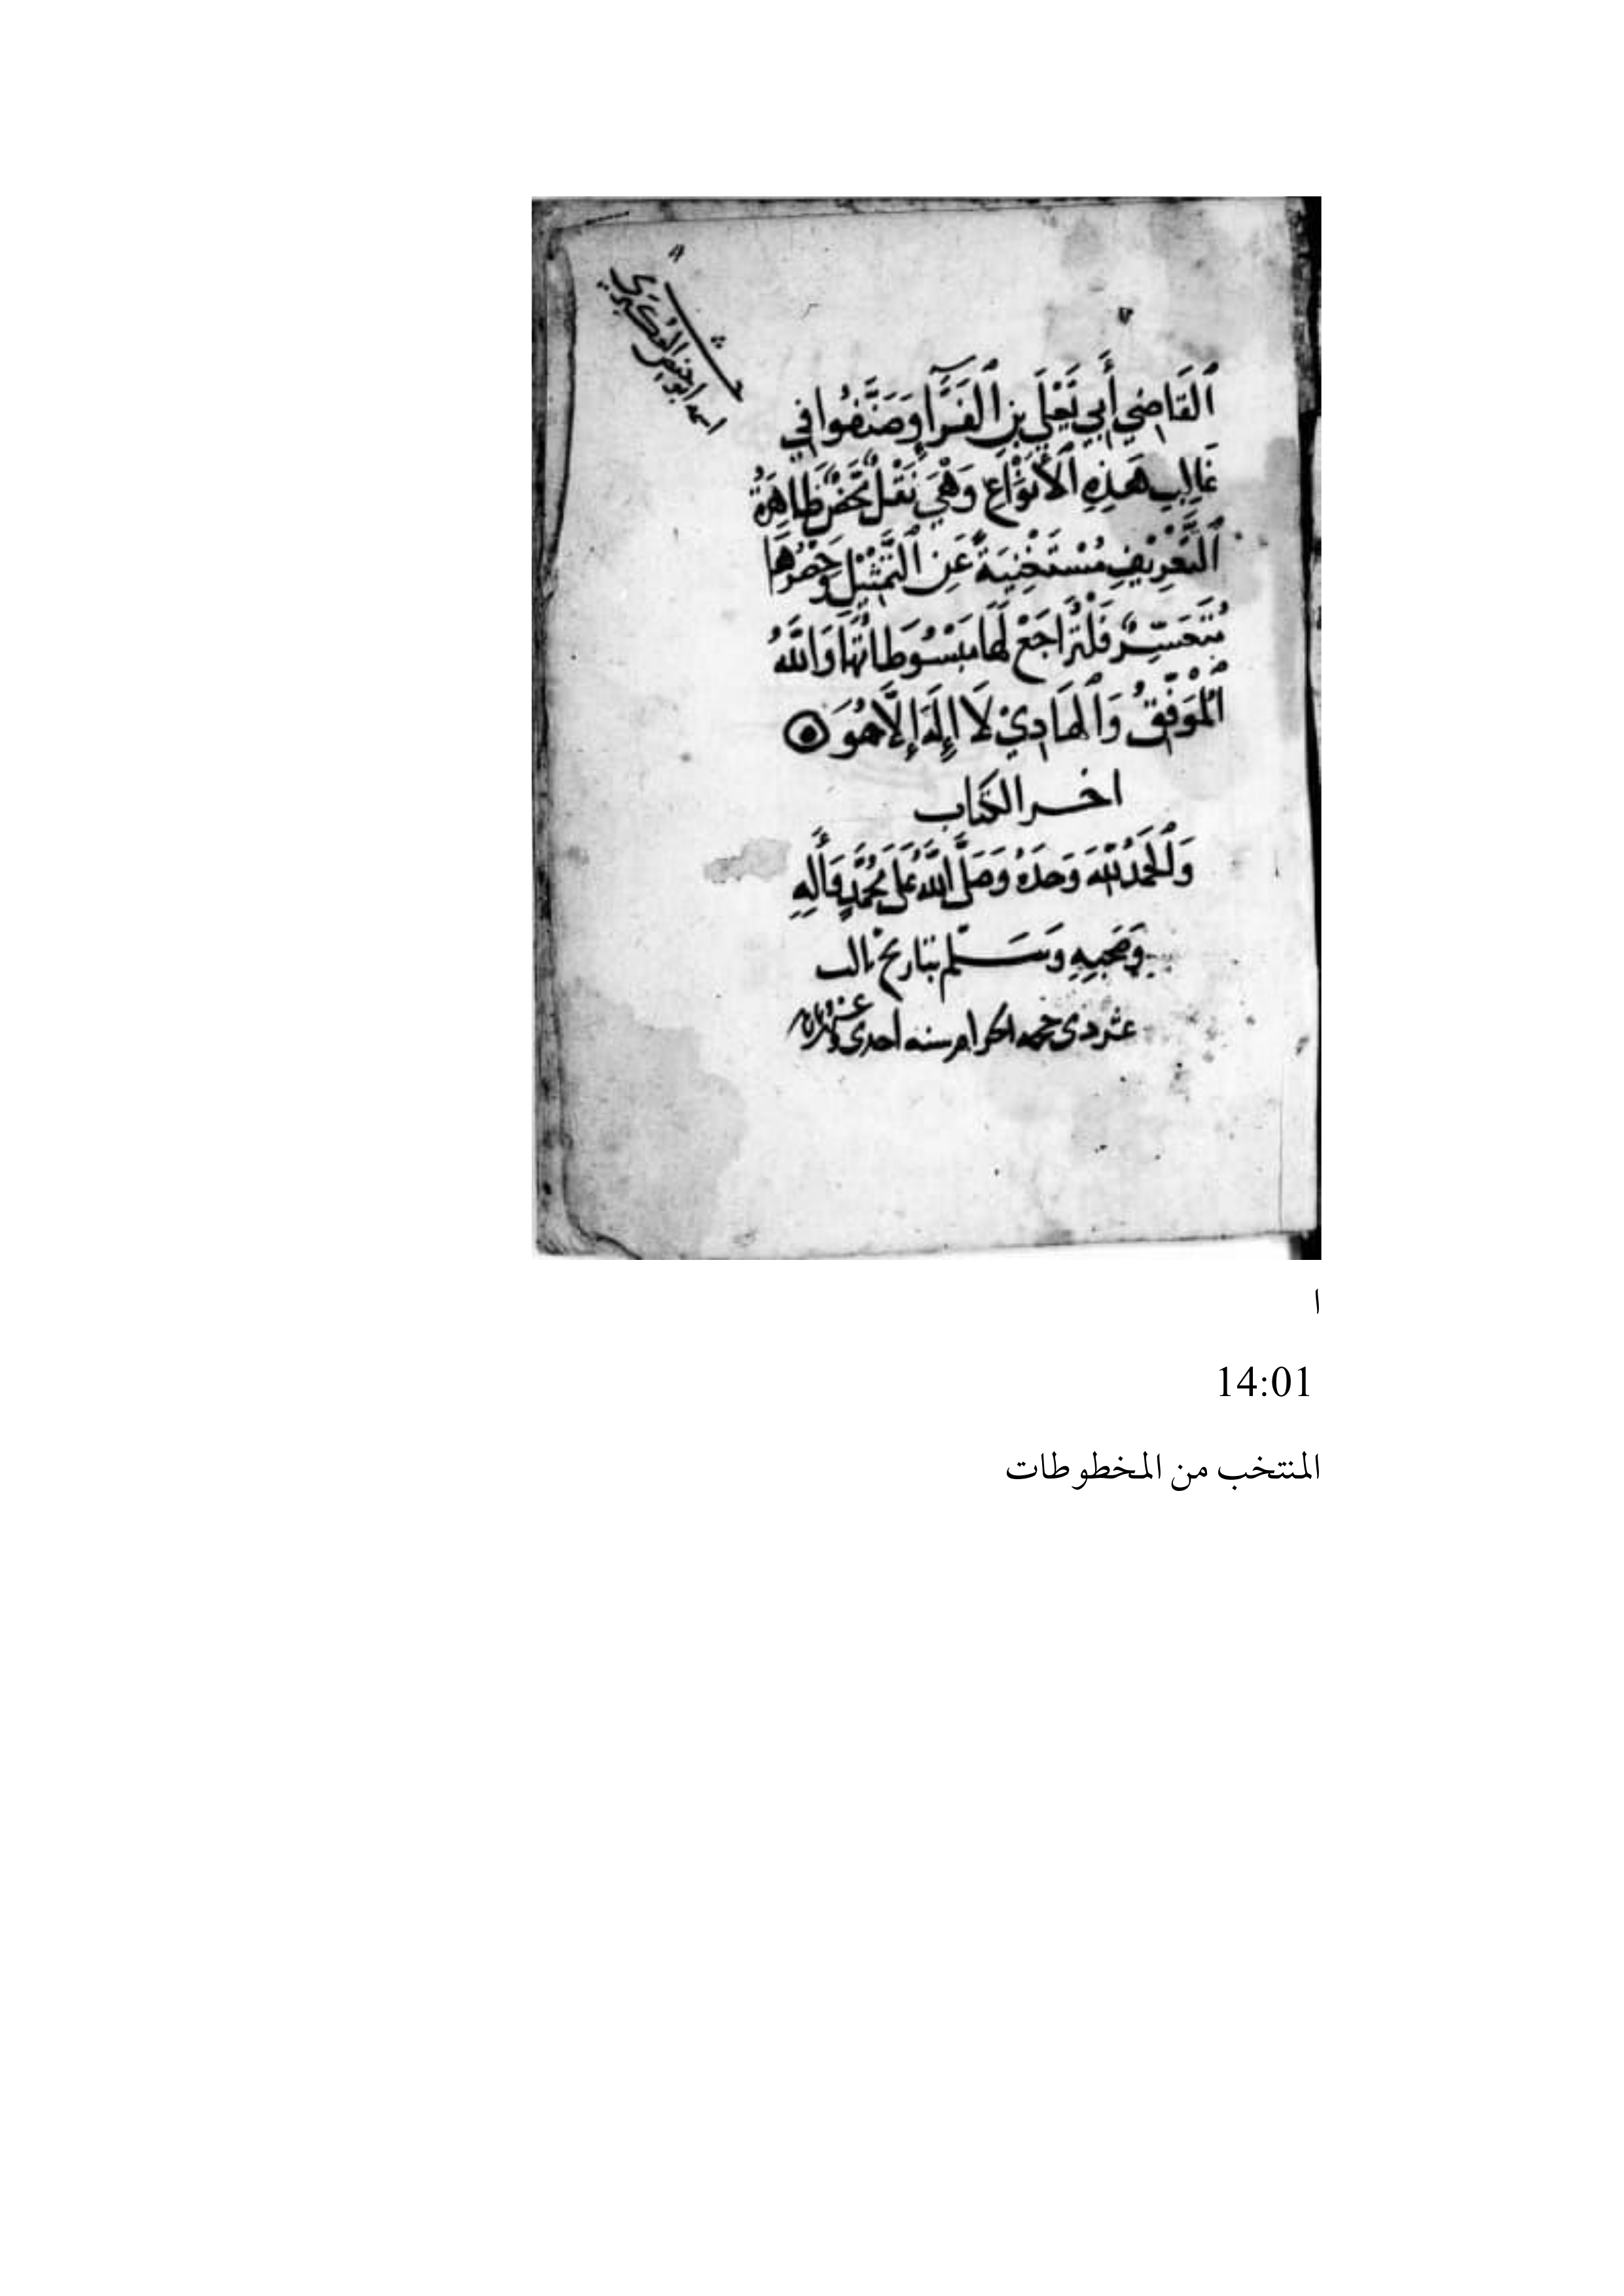 اسمه ابو حفص العكبري
ٱلقَاضِي أَبِي يَعْلَي بنِ ٱلفَرَّآءِ وَصَنَّفُوا فِي
غَالِبِ هَذِهِ ٱلأَنْوَاعِ وَهْيَ نَقْلٌ مَحْضٌ ظَاهِرَةُ
ٱلتَّعْرِيْفِ مُسْتَغْنِيَةٌ عَنِ ٱلتَّمْثِيْلِ وَحَصْرُهَا
مُتَعَسِّرٌ فَلْتُرَاجَعْ لَهَا مَبْسُوطَاتُهَا وَاللَّهُ
ٱلْمُوَفِّقُ وَٱلهَادِيْ لَا إِلَهَ إِلَّا هُوَ
اخر الكتاب
وَٱلحَمْدُ لِلَّهِ وَحدَهُ وَصَلَّى اللَّهُ عَلَى مُحَمَّدٍ وَأَلِهِ
وَصَحبِهِ وَسَلم بتاريخ ثالث
عشر ذي حجه الحرام سنه احدى
ا
14:01
المنتخب من المخطوطات